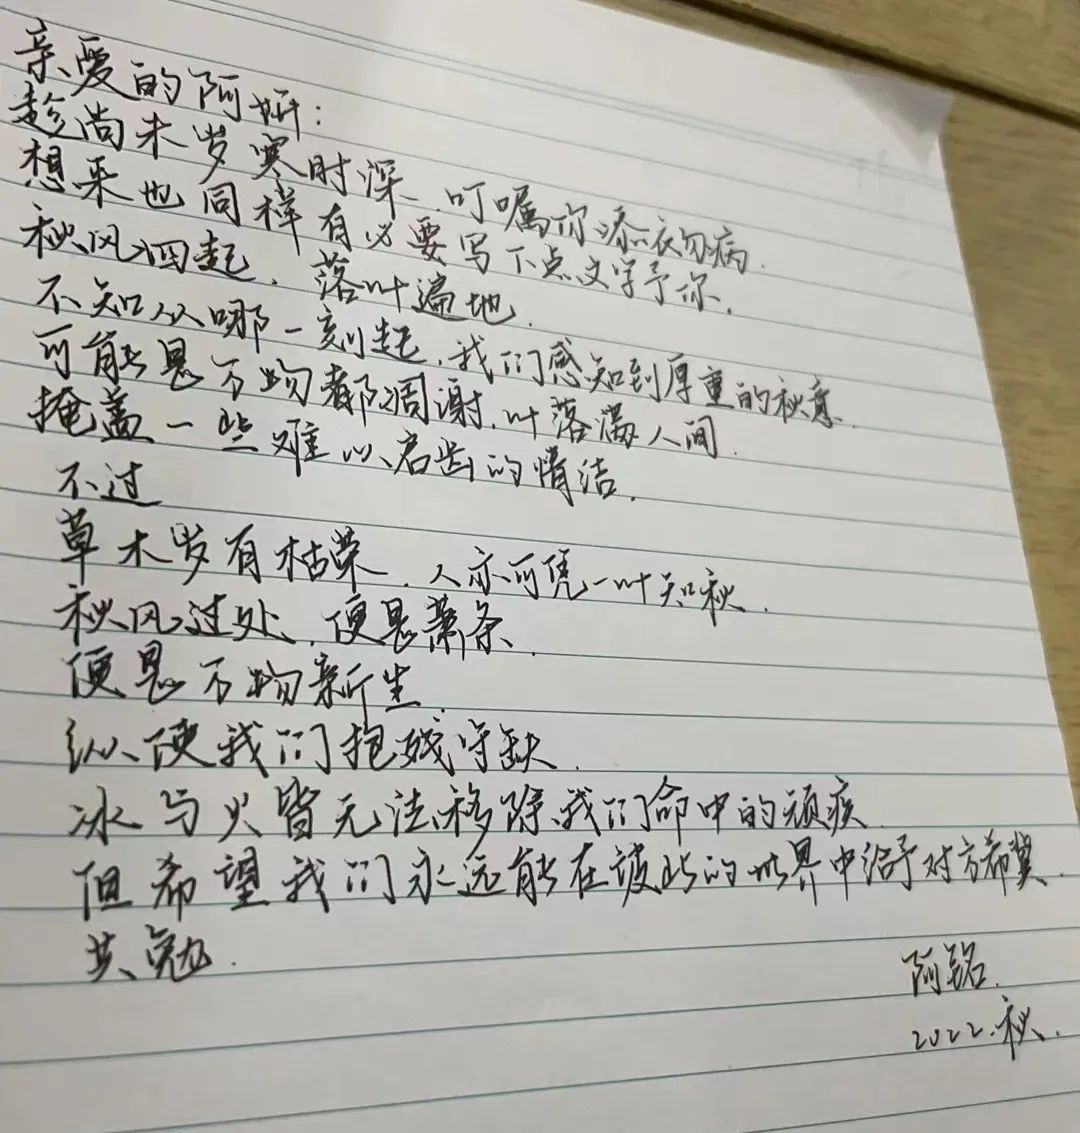 亲爱的阿妍:
趁尚未岁寒时深,叮嘱你添衣勿病.
想来也同样有必要写下点文字予你.
秋风四起,落叶遍地.
不知从哪一刻起,我们感知到厚重的秋意.
可能是万物都凋谢,叶落满人间.
掩盖一些难以启齿的情洁.
不过
草木岁有枯荣,人亦可凭一叶知秋.
秋风过处,便是萧条.
便是万物新生.
纵使我们抱残守缺.
冰与火皆无法移除我们命中的顽疾.
但希望我们永远能在彼此的世界中给予对方希冀.
共勉.
阿铭.
2022.秋.